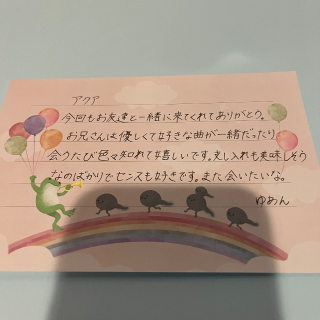 アクア
今回もお友達と一緒に来てくれてありがとう。
お兄さんは優しくて好きな曲が一緒だったり
会うたび色々知れて嬉しいです。差し入れも美味しそう
なのばかりでセンスも好きです。また会いたいな。
ゆあん